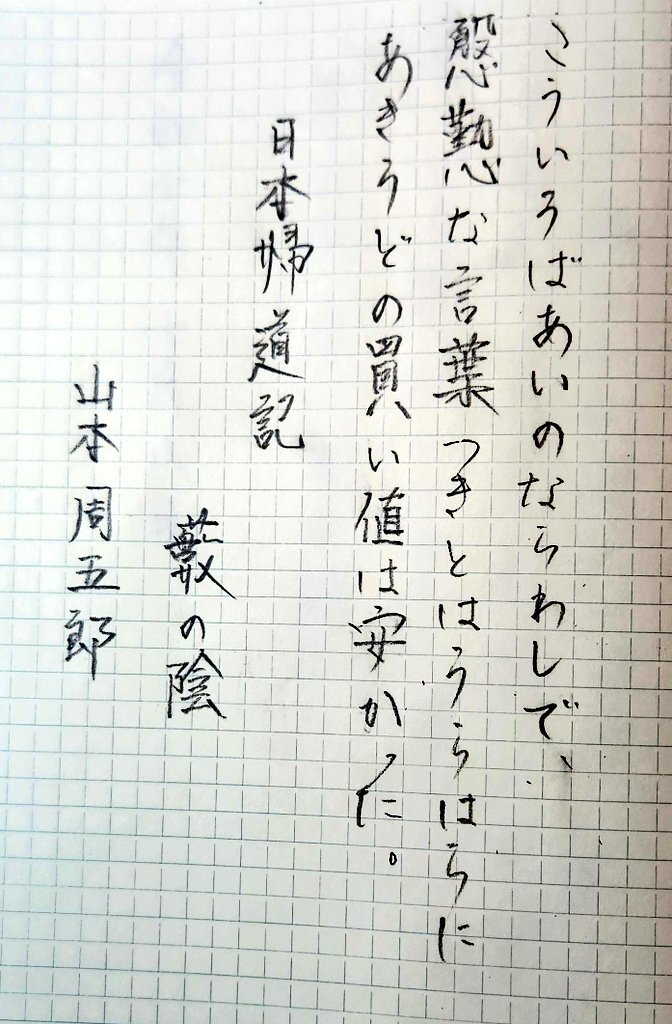 こういうばあいのならわしで、
慇懃な言葉つきとはうらはらに
あきうどの買い値は安かった。
日本婦道記
藪の陰
山本周五郎